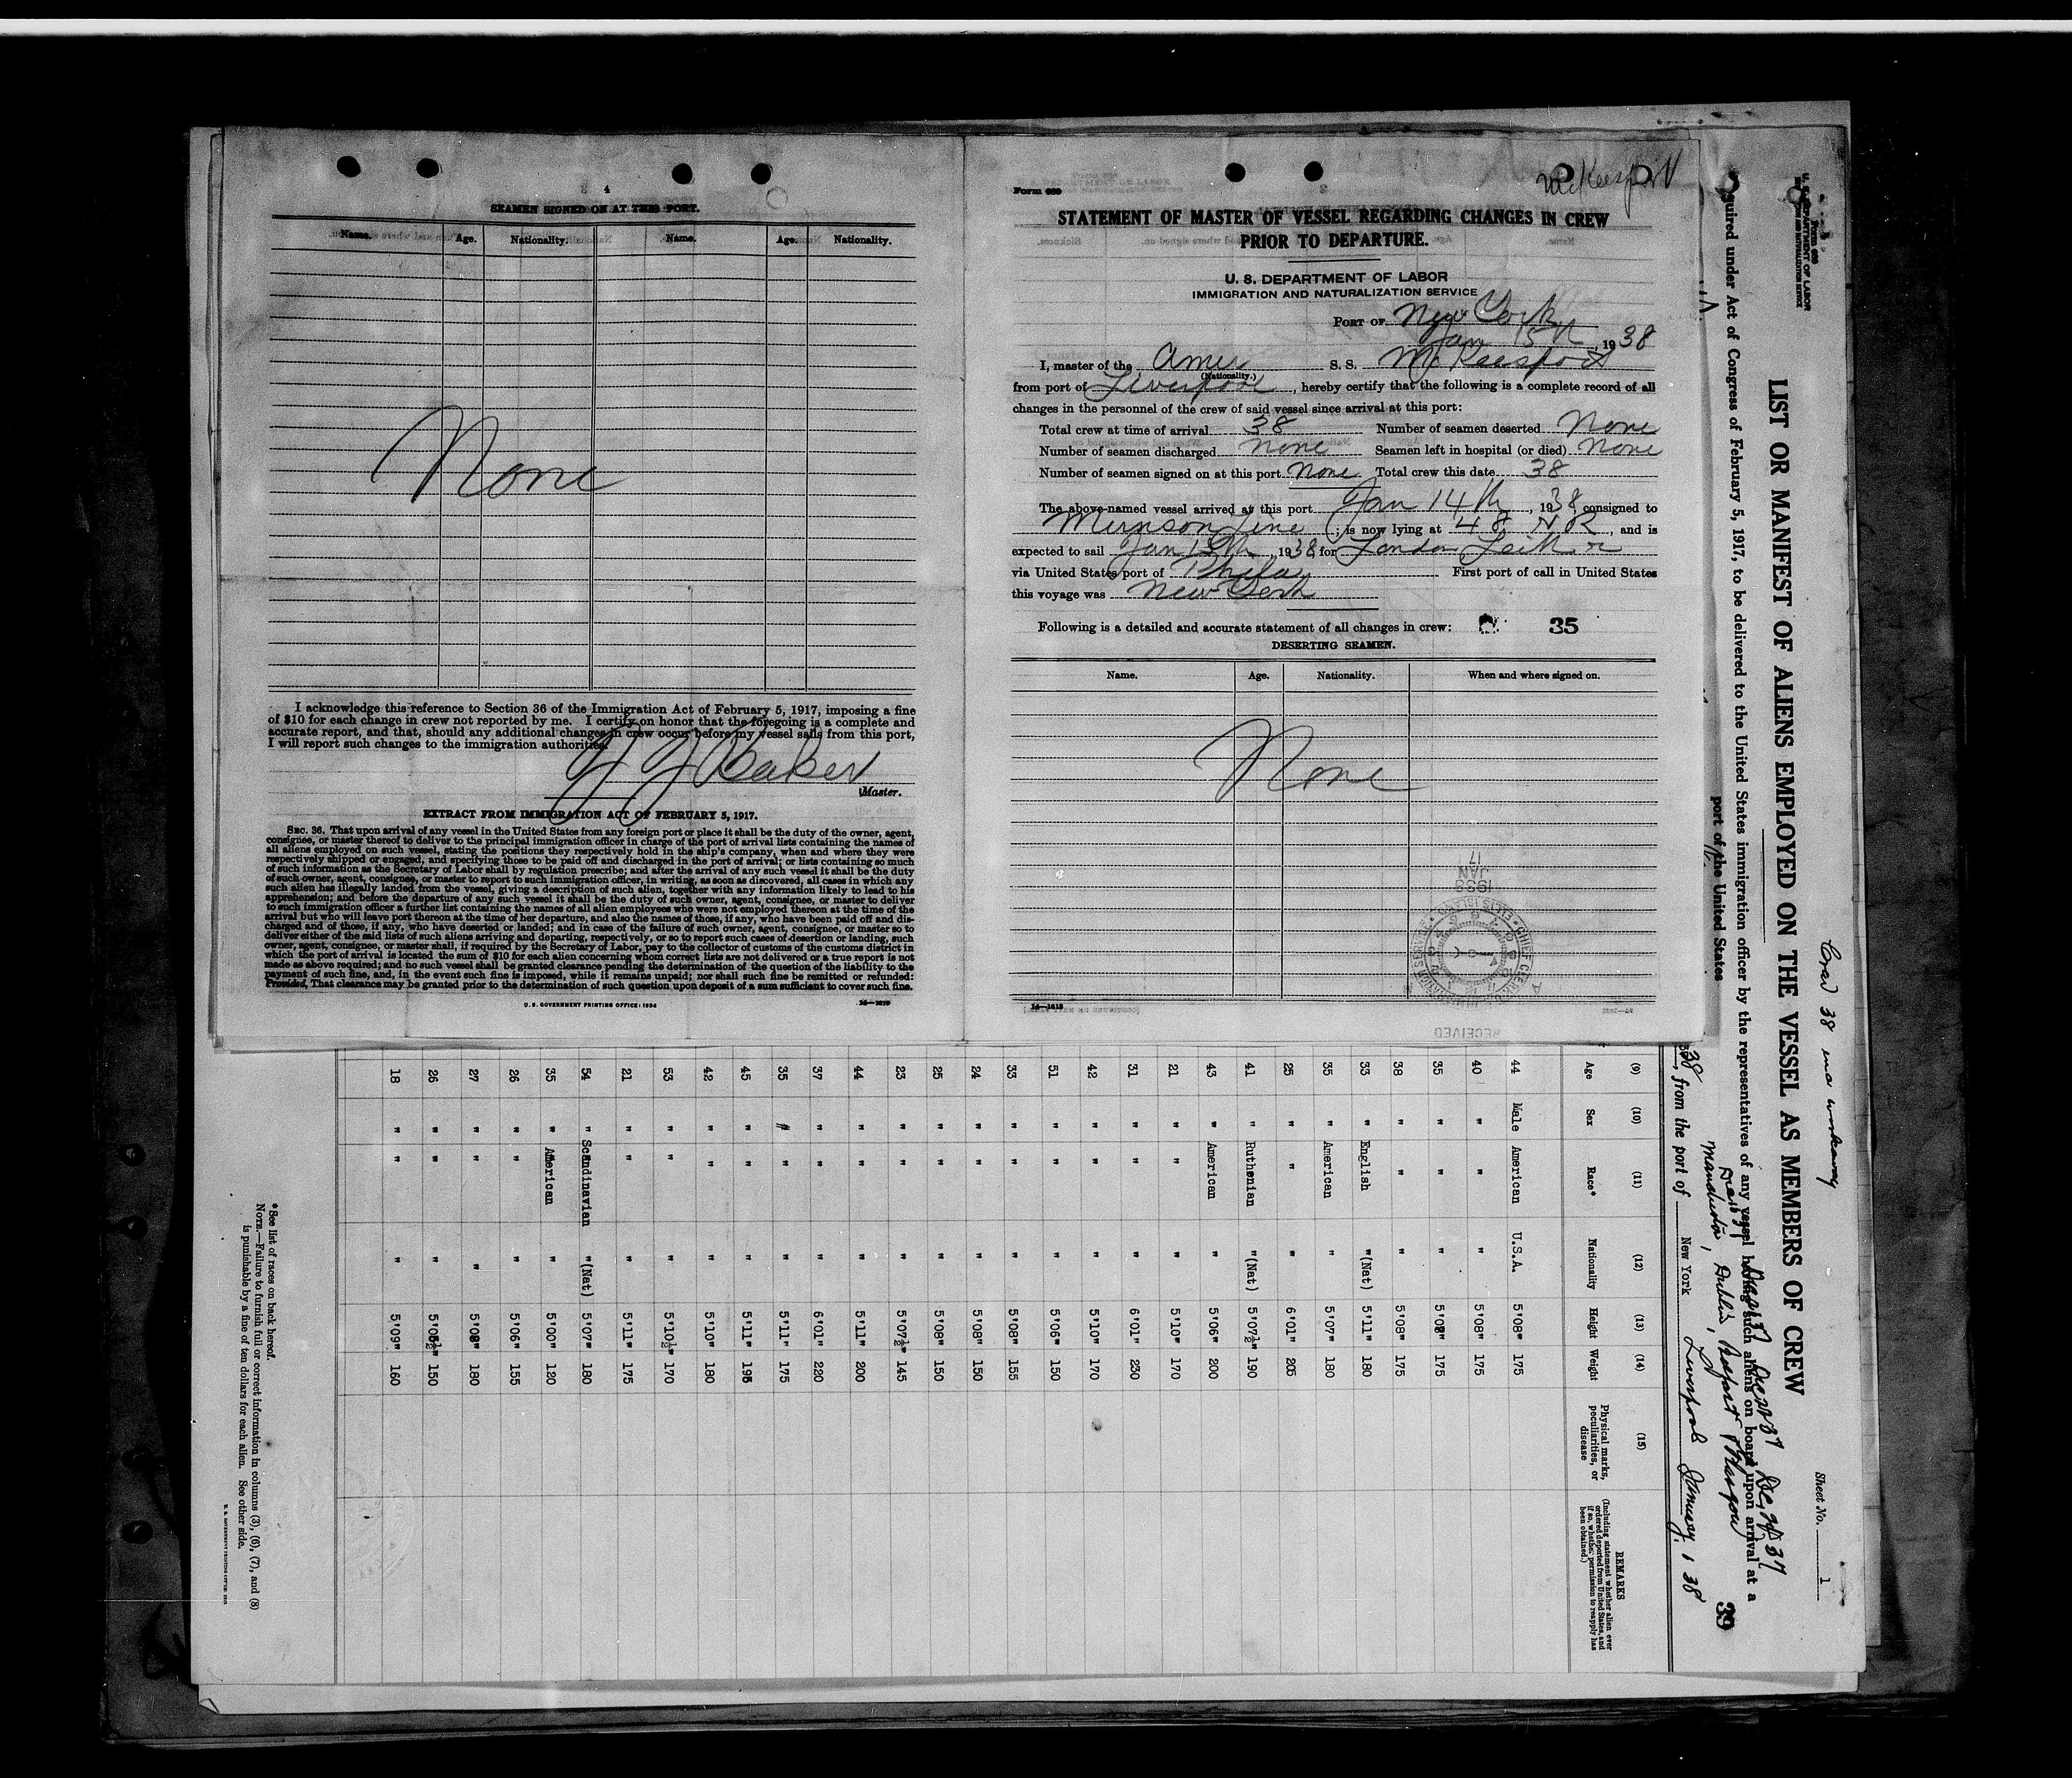 4
SEAMEN SIGNED ON AT THIS PORT.
Name. Age. Nationality. Name. Age. Nationality.
None
I acknowledge this reference to Section 36 of the Immigration Act of February 5, 1917, imposing a fine
of $10 for each change in crew not reported by me. I certify on honor that the foregoing is a complete and
accurate report, and that, should any additional changes in crew occur before my vessel sails from this port,
I will report such changes to the immigration authorities.
Baker
Master.
EXTRACT FROM IMMIGRATION ACT OF FEBRUARY 5, 1917.
SEC. 36. That upon arrival of any vessel in the United States from any foreign port or place it shall be the duty of the owner, agent,
consignee, or master thereof to deliver to the principal immigration officer in charge of the port of arrival lists containing the names of
all aliens employed on such vessel, stating the positions they respectively hold in the ship's company, when and where they were
respectively shipped or engaged, and specifying those to be paid off and discharged in the port of arrival; or lists containing so much
of such information as the Secretary of Labor shall by regulation prescribe; and after the arrival of any such vessel it shall be the duty
of such owner, agent, consignee, or master to report to such immigration officer, in writing, as soon as discovered, all cases in which any
such alien has illegally landed from the vessel, giving a description of such alien, together with any information likely to lead to his
apprehension; and before the departure of any such vessel it shall be the duty of such owner, agent, consignee, or master to deliver
to such immigration officer a further list containing the names of all alien employees who were not employed thereon at the time of the
arrival but who will leave port thereon at the time of her departure, and also the names of those, if any, who have been paid off and dis-
charged and of those, if any, who have deserted or landed; and in case of the failure of such owner, agent, consignee, or master so to
deliver either of the said lists of such aliens arriving and departing, respectively, or so to report such cases of desertion or landing, such
owner, agent, consignee, or master shall, if required by the Secretary of Labor, pay to the collector of customs of the customs district in
which the port of arrival is located the sum of $10 for each alien concerning whom correct lists are not delivered or a true report is not
made as above required; and no such vessel shall be granted clearance pending the determination of the question of the liability to the
payment of such fine, and, in the event such fine is imposed, while it remains unpaid; nor shall such fine be remitted or refunded:
Provided, That clearance may be granted prior to the determination of such question upon deposit of a sum sufficient to cover such fine.
U. S. GOVERNMENT PRINTING OFFICE: 1934
McKeesport
Form 689
STATEMENT OF MASTER OF VESSEL REGARDING CHANGES IN CREW
PRIOR TO DEPARTURE.
U. S. DEPARTMENT OF LABOR
IMMIGRATION AND NATURALIZATION SERVICE
PORT OF New York
Jan 15th, 1938
I, master of the Amer S. S. McKeesport
(Nationality.)
from port of Liverpool, hereby certify that the following is a complete record of all
changes in the personnel of the crew of said vessel since arrival at this port:
Total crew at time of arrival 38 Number of seamen deserted None
Number of seamen discharged none Seamen left in hospital (or died) None
Number of seamen signed on at this port None Total crew this date 38
The above-named vessel arrived at this port Jan 14th, 1938, consigned to
Munson Line; is now lying at 48 N R, and is
expected to sail Jan 15th, 1938, for London Leith
via United States port of Phila First port of call in United States
this voyage was New York
Following is a detailed and accurate statement of all changes in crew: 35
DESERTING SEAMEN.
Name. Age. Nationality. When and where signed on.
None
1938
JAN
17
CHIEF CLERK
ELLIS ISLAND
RECEIVED
U. S. DEPARTMENT OF LABOR
Sheet No. 1
Crew 38 one workaway
LIST OR MANIFEST OF ALIENS EMPLOYED ON THE VESSEL AS MEMBERS OF CREW
Required under Act of Congress of February 5, 1917, to be delivered to the United States immigration officer by the representatives of any vessel having such aliens on board upon arrival at a
port of the United States
39
Manchester, Dublin, Belfast, Glasgow
38, from the port of New York Liverpool January 1 38
(9) (10) (11) (12) (13) (14) (15)
Age Sex Race* Nationality Height Weight Physical marks, peculiarities, or disease REMARKS
(Including statement whether alien ever ordered deported from United States, and if so, whether permission to reapply has been obtained.)
44 Male American U.S.A. 5'08" 175
40 " " " 5'08" 175
35 " " " 5'08" 175
38 " " " 5'08" 175
33 " English "(Nat) 5'11" 180
35 " American " 5'07" 180
25 " " " 6'01" 205
41 " Ruthenian "(Nat) 5'07½" 190
43 " American " 5'06" 200
21 " " " 5'10" 170
31 " " " 6'01" 230
42 " " " 5'10" 170
51 " " " 5'06" 150
33 " " " 5'08" 155
24 " " " 5'08" 150
25 " " " 5'08" 150
23 " " " 5'07½" 145
44 " " " 5'11" 200
37 " " " 6'01" 220
35 " " " 5'11" 175
45 " " " 5'11" 195
42 " " " 5'10" 180
53 " " " 5'10½" 170
21 " " " 5'11" 175
54 " Scandinavian "(Nat) 5'07" 180
35 " American " 5'00" 120
26 " " " 5'06" 155
27 " " " 5'08" 180
26 " " " 5'05½" 150
18 " " " 5'09" 160
*See list of races on back hereof.
NOTE.—Failure to furnish full or correct information in columns (3), (6), (7), and (8)
is punishable by a fine of ten dollars for each alien. See other side.